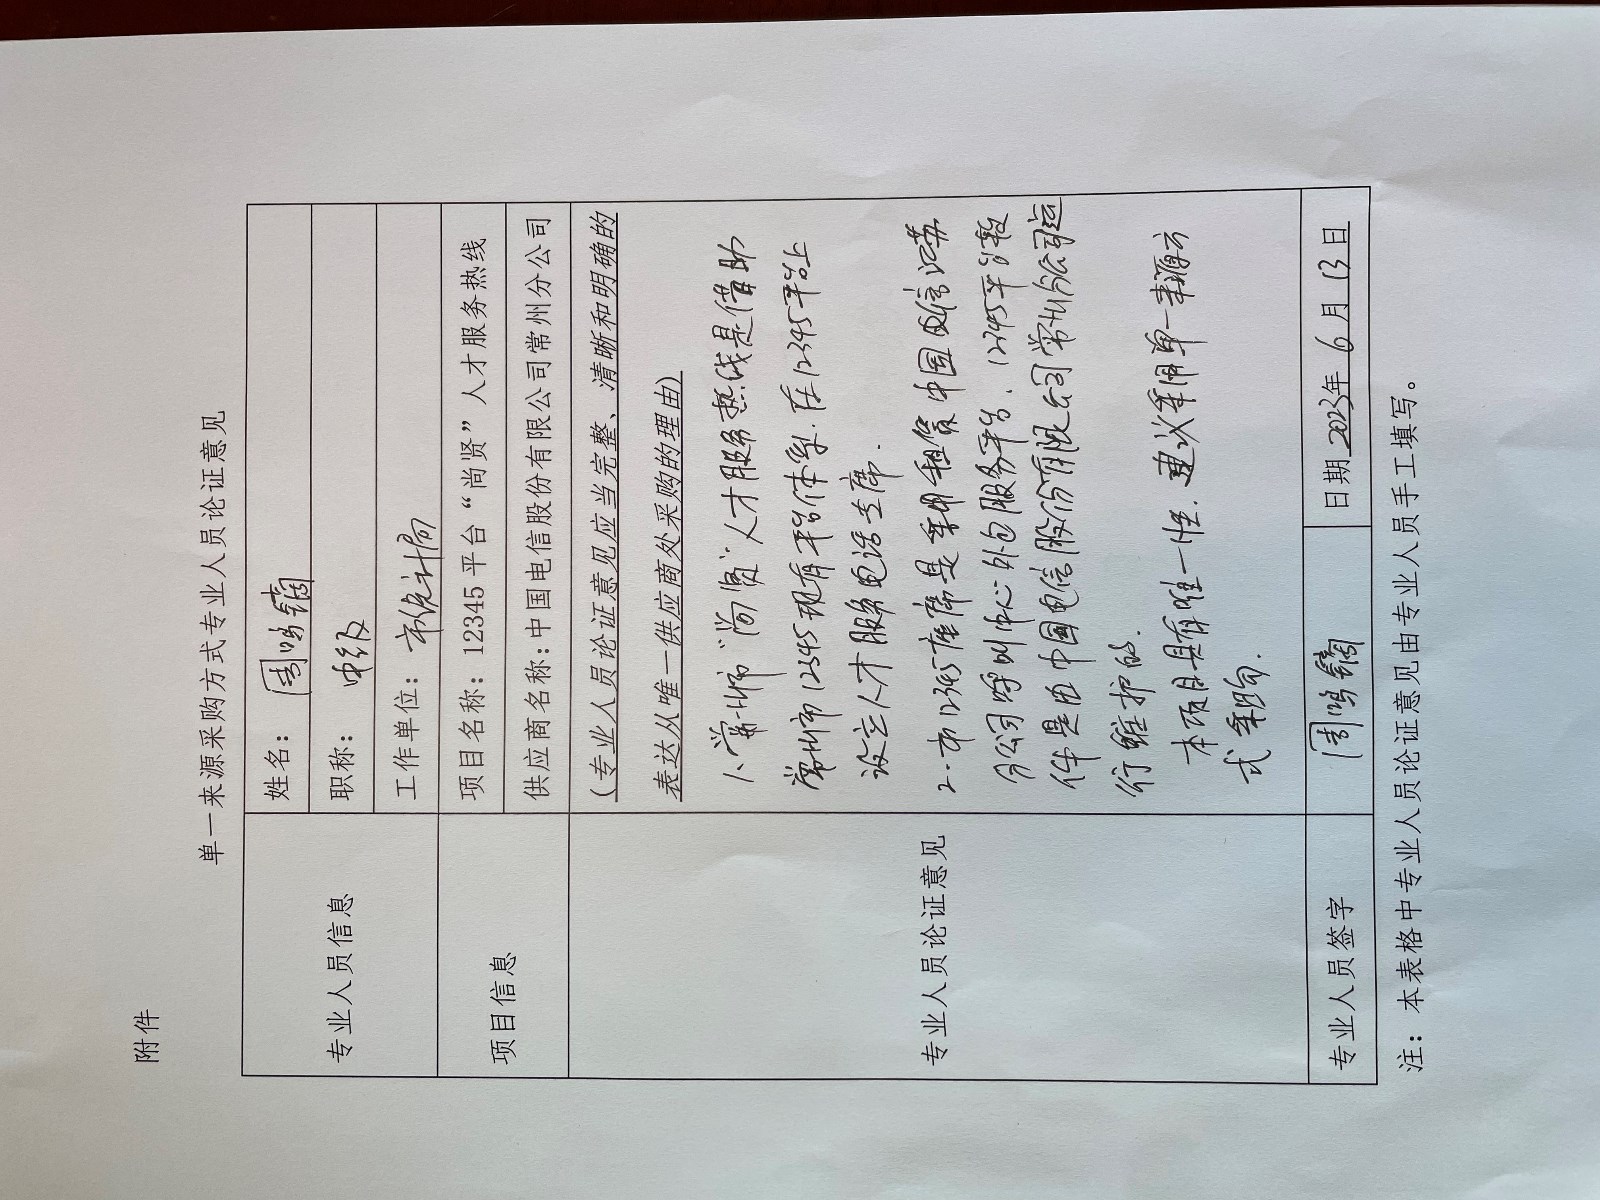 附件
单一来源采购方式专业人员论证意见
专业人员信息
姓名：周鸣镝
职称：中级
工作单位：市统计局
项目信息
项目名称：12345平台“尚贤”人才服务热线
供应商名称：中国电信股份有限公司常州分公司
专业人员论证意见
（专业人员论证意见应当完整、清晰和明确的
表达从唯一供应商处采购的理由）
1、常州市“尚贤”人才服务热线是借助
常州市12345现有平台体系，在12345平台上
设立人才服务电话专席.
2、市12345座席是采用租赁中国电信江苏
分公司呼叫中心外包服务平台、12345平台软
件是由中国电信股份有限公司常州分公司运
行维护的.
本项目具有唯一性.建议采用单一来源方
式采购.
专业人员签字
周鸣镝
日期2023年6月13日
注：本表格中专业人员论证意见由专业人员手工填写。